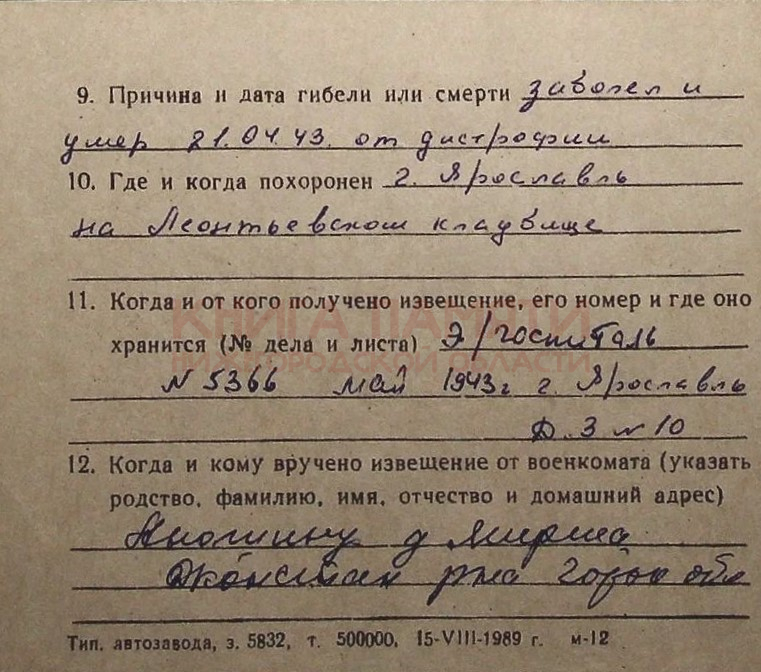 9. Причина и дата гибели или смерти заболел и
умер 21.04.43. от дистрофии
10. Где и когда похоронен г. Ярославль
на Леонтьевском кладбище
11. Когда и от кого получено извещение, его номер и где оно
хранится (№ дела и листа) Э/госпиталь
КНИГА ПАМЯТИ
НИЖЕГОРОДСКОЙ ОБЛАСТИ
N 5366 май 1943г г. Ярославль
Д. 3 л 10
12. Когда и кому вручено извещение от военкомата (указать
родство, фамилию, имя, отчество и домашний адрес)
д
рна обл
Тип. автозавода, з. 5832, т. 500000, 15-VIII-1989 г. м-12